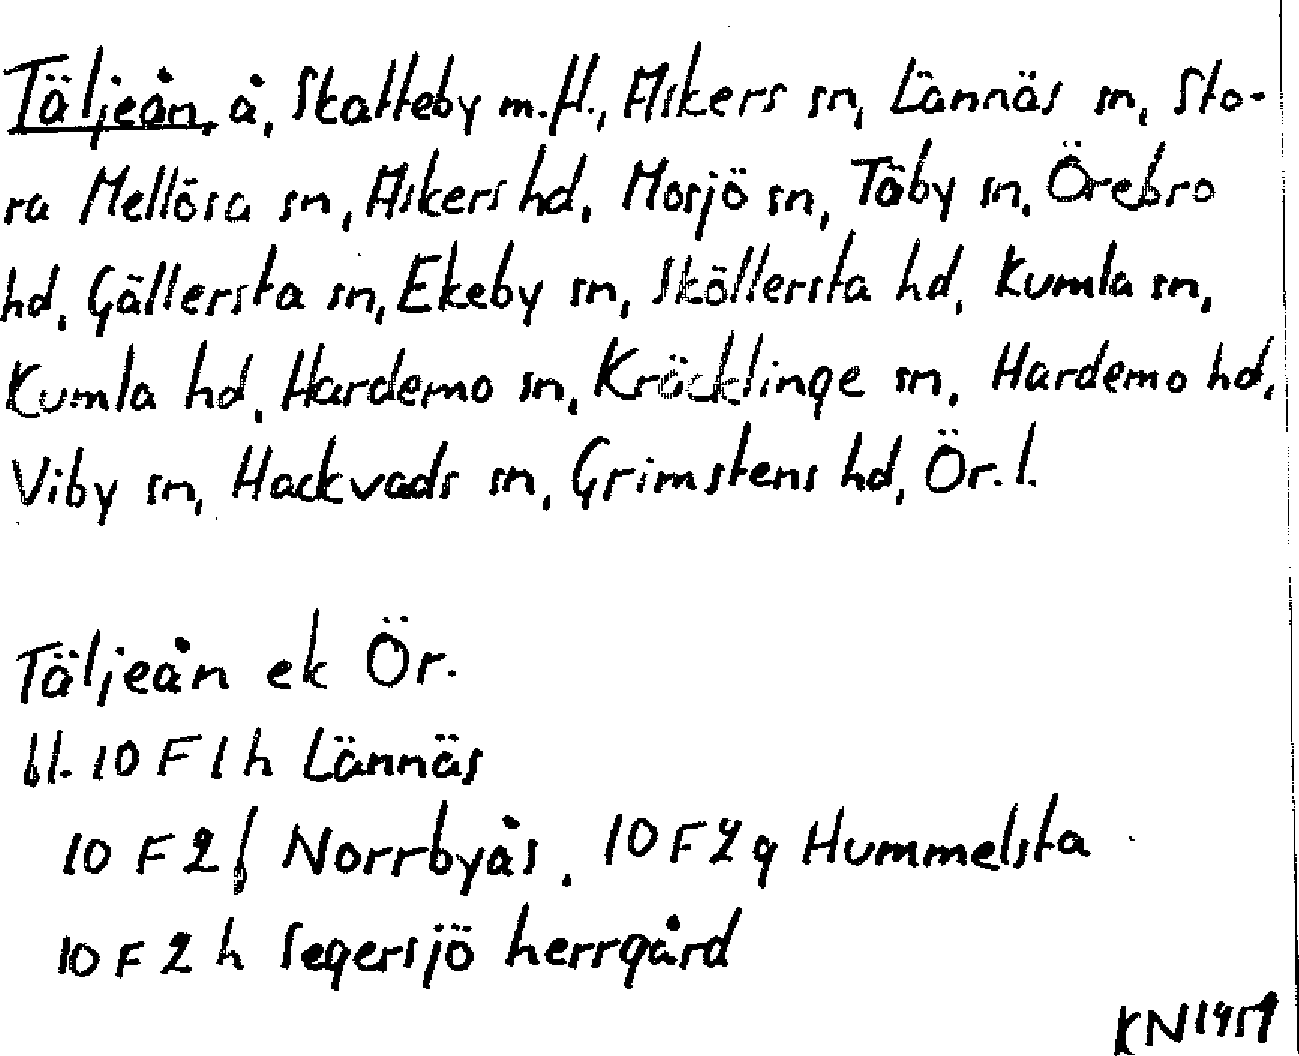 Täljeån, å, Skatteby m.fl., Askers sn, Lännäs sn, Sto-
ra Mellösa sn, Askers hd, Mosjö sn, Täby sn, Örebro
hd, Gällersta sn, Ekeby sn, Sköllersta hd, Kumla sn,
Kumla hd, Hardemo sn, Kräcklinge sn, Hardemo hd,
Viby sn, Hackvads sn, Grimstens hd, Ör. l.
Täljeån ek Ör.
bl. 10 F 1 h Lännäs
10 F 2 f Norrbyås, 10 F 2 g Hummelsta
10 F 2 h Segersjö herrgård
KN